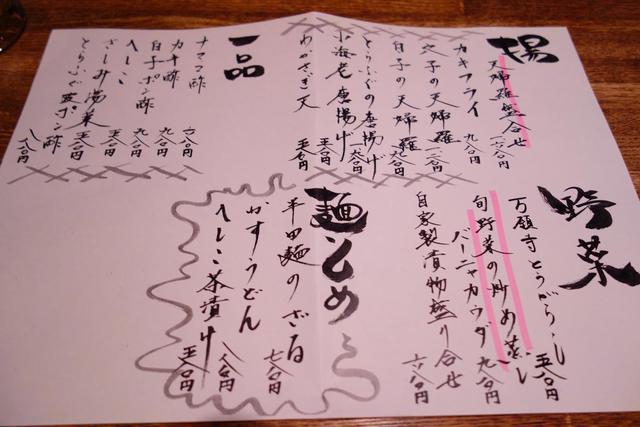 揚
天婦羅盛合せ 一六〇〇円
カキフライ 九八〇円
穴子の天婦羅 一二〇〇円
白子の天婦羅 九八〇円
とらふぐの唐揚げ
小海老唐揚げ 五八〇円
わかさぎ天
一品
ナマコ酢 六八〇円
カキ酢 九八〇円
白子ポン酢 九八〇円
へしこ 五八〇円
さしみ湯葉 五八〇円
とらふぐ皮ポン酢 八八〇円
野菜
万願寺とうがらし 五八〇円
旬野菜の炒め蒸し
バーニャカウダ 九八〇円
自家製漬物盛り合せ 六八〇円
麺とめし
半田麺のざる 七八〇円
かすうどん 八八〇円
へしこ茶漬け 五八〇円